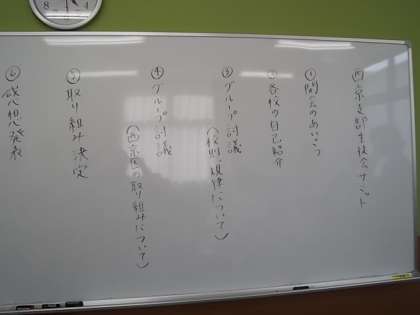 西京支部生徒会サミット
①開会のあいさつ
②各校の自己紹介
③グループ討議
(校則・規律について)
④グループ討議
(西京区の取り組みについて)
⑤取り組み決定
⑥感想発表